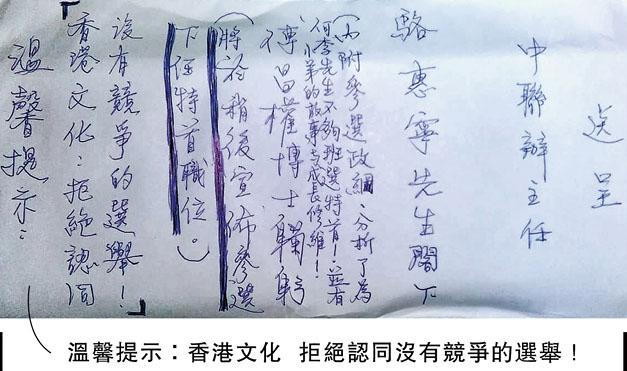 送呈
中聯辦主任
駱惠寧先生閣下
(內附參選政綱,分析了為
何李先生不夠班選特首!並有
小弟的故事與成長修維!
傅昌權博士鞠躬
(將於稍後宣佈參選
下任特首職位。)
溫馨提示:
「香港文化:拒絕認同
沒有競爭的選舉!」
溫馨提示:香港文化 拒絕認同沒有競爭的選舉!